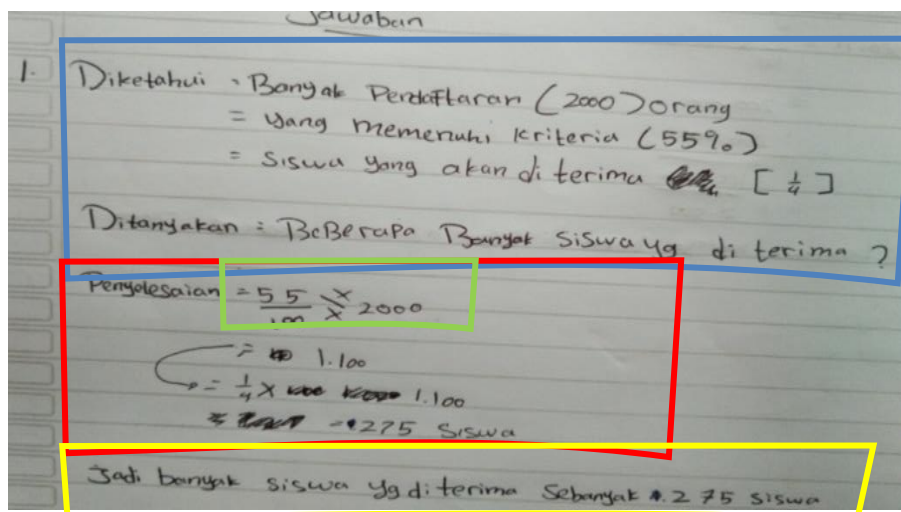 Jawaban
1. Diketahui = Banyak Pendaftaran (2000) orang
= yang memenuhi kriteria (55%)
= siswa yang akan di terima [ 1/4 ]
Ditanyakan = BeBerapa Banyak siswa yg di terima ?
Penyelesaian = 55/100 x 2000
= 1.100
= 1/4 x 1.100
= 275 siswa
Jadi banyak siswa yg di terima sebanyak 275 siswa